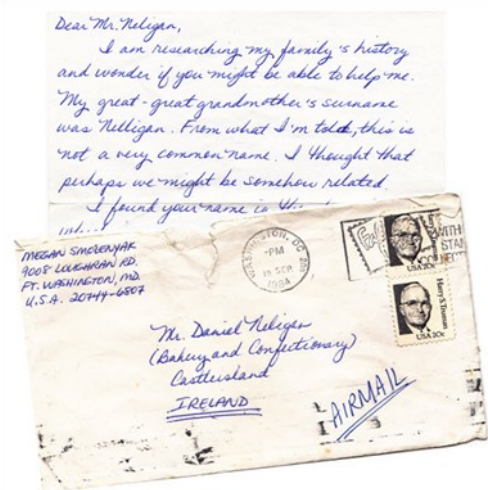 Dear Mr. Neligan,
I am researching my family's history
and wonder if you might be able to help me.
My great-great grandmother's surname
was Nelligan. From what I'm told, this is
not a very common name. I thought that
perhaps we might be somehow related.
I found your name in
MEGAN SMOLENYAK
9008 LOUGHRAN RD.
FT. WASHINGTON, MD.
U.S.A. 20744-6507
WASHINGTON, DC
PM
19 SEP
1984
WITH
STAM
USA 20c
Harry S. Truman
USA 20c
Mr. Daniel Neligan
(Bakery and Confectionary)
Castleisland
IRELAND
AIRMAIL